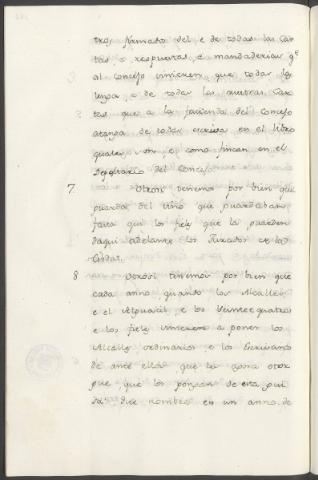 tro, firmado del e de todas las Car
tas, o respuestas, e mandaderias q.e
al concejo vinieren, que todas las
tenga, e de todas las nuestras Car
tas que a la facienda del Concejo
atanga de todas escriva en el libro
quales son, e como fincan en el
del Concejo
7. Otrosi tenemos por bien que
guarda del vino que guardaban
fasta qui los fieles que la guarden
daqui adelante los Jurados de la
Cibdat.
8. Otrosi tenemos por bien que
cada anno quando los Alcalles
e el Alguacil, e los Veintequatros
e los fieles vinieren a poner los
Alcalles ordinarios e los Escrivanos
de ante ellos que la
gue, que los pongan de esta gui
sa diez nombres en un anno de